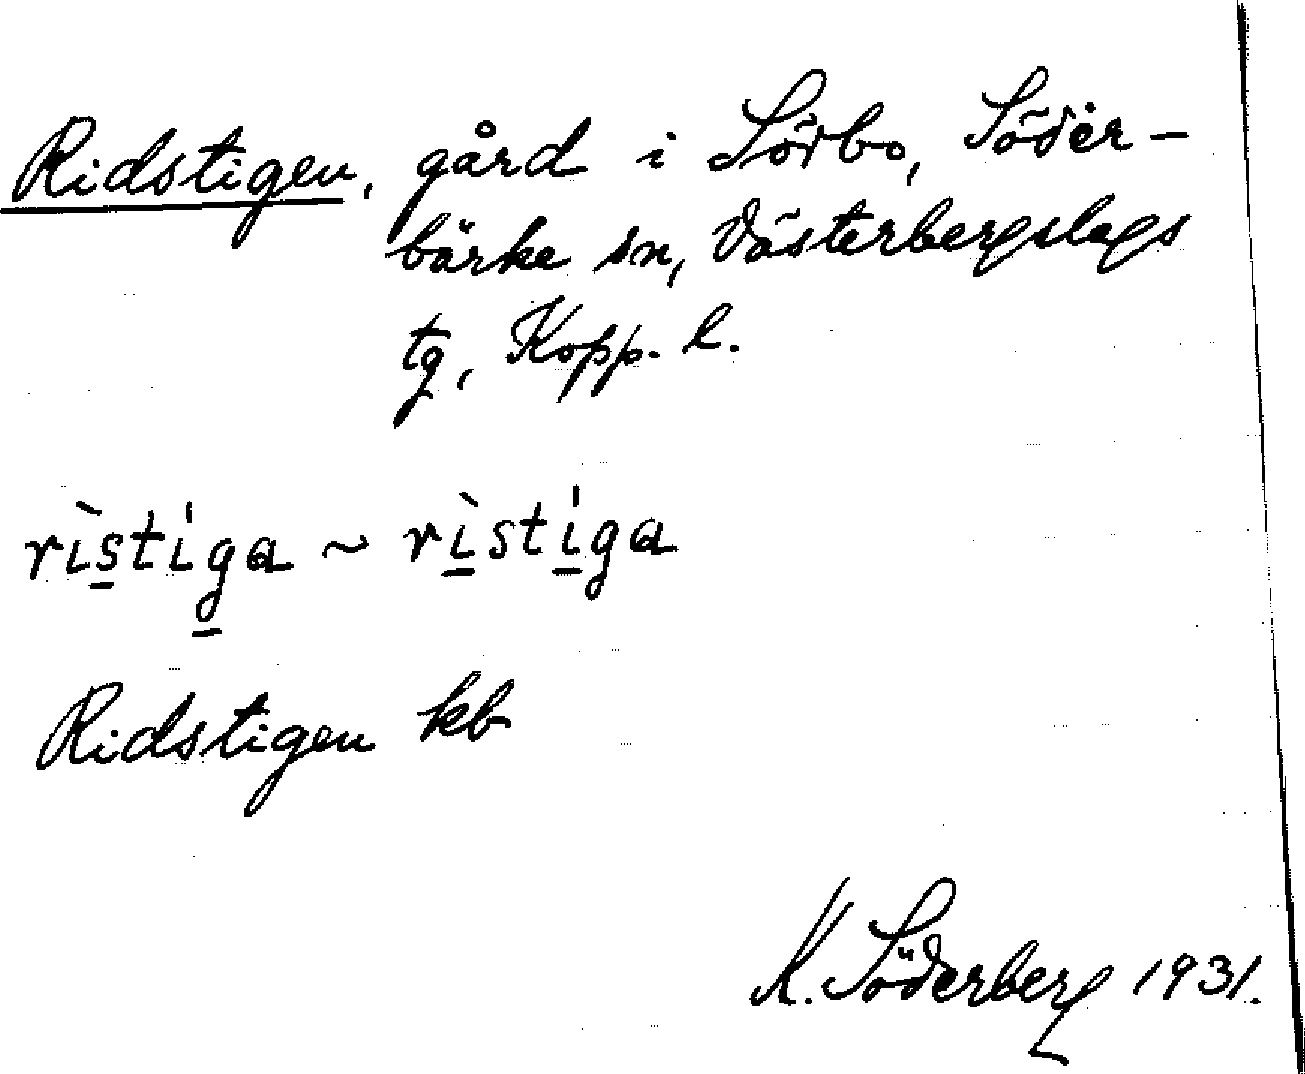 Ridstigen, gård i Sörbo, Söder-
bärke sn, Västerbergslags
tg, Kopp. l.
rìstíga ~ rìstíga
Ridstigen kb
K. Söderberg 1931.